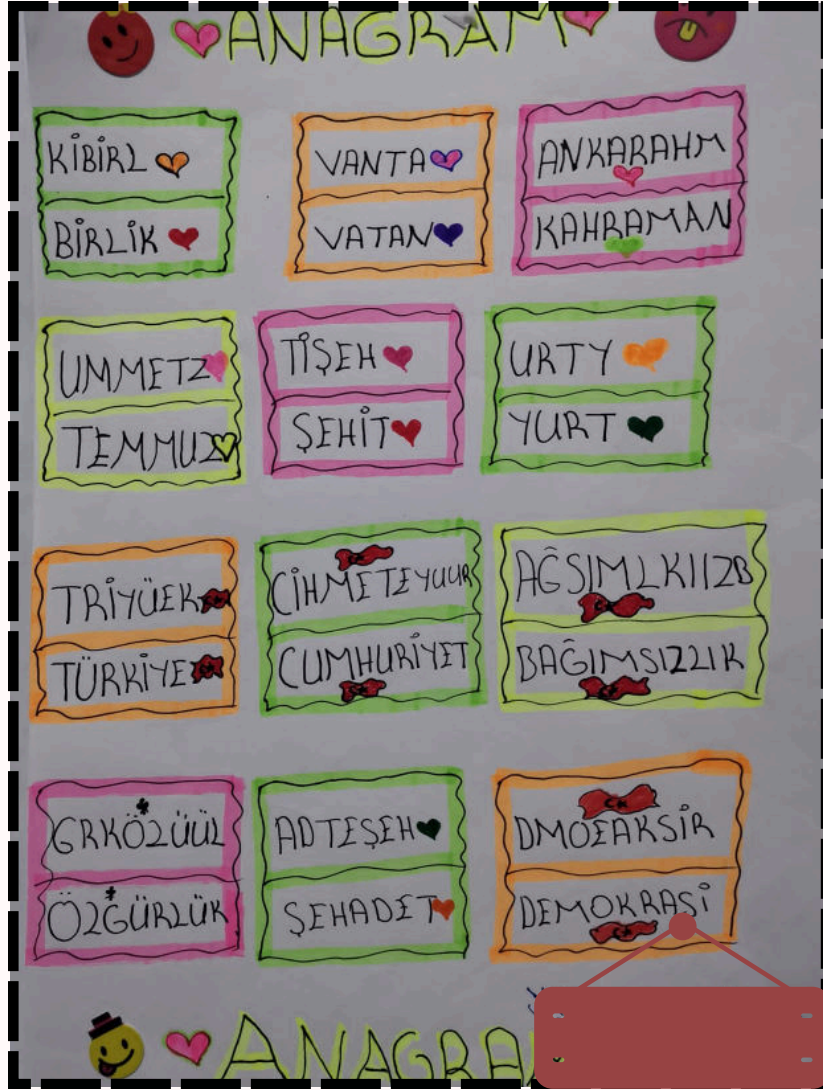 ANAGRAM
KİBİRL
BİRLİK
VANTA
VATAN
ANKARAHM
KAHRAMAN
UMMETZ
TEMMUZ
TİŞEH
ŞEHİT
URTY
YURT
TRİYÜEK
TÜRKİYE
CİHMETEYUUR
CUMHURİYET
AĞSIMLKIIZB
BAĞIMSIZLIK
GRKÖZÜÜL
ÖZGÜRLÜK
ADTEŞEH
ŞEHADET
DMOEAKSİR
DEMOKRASİ
ANAGRA